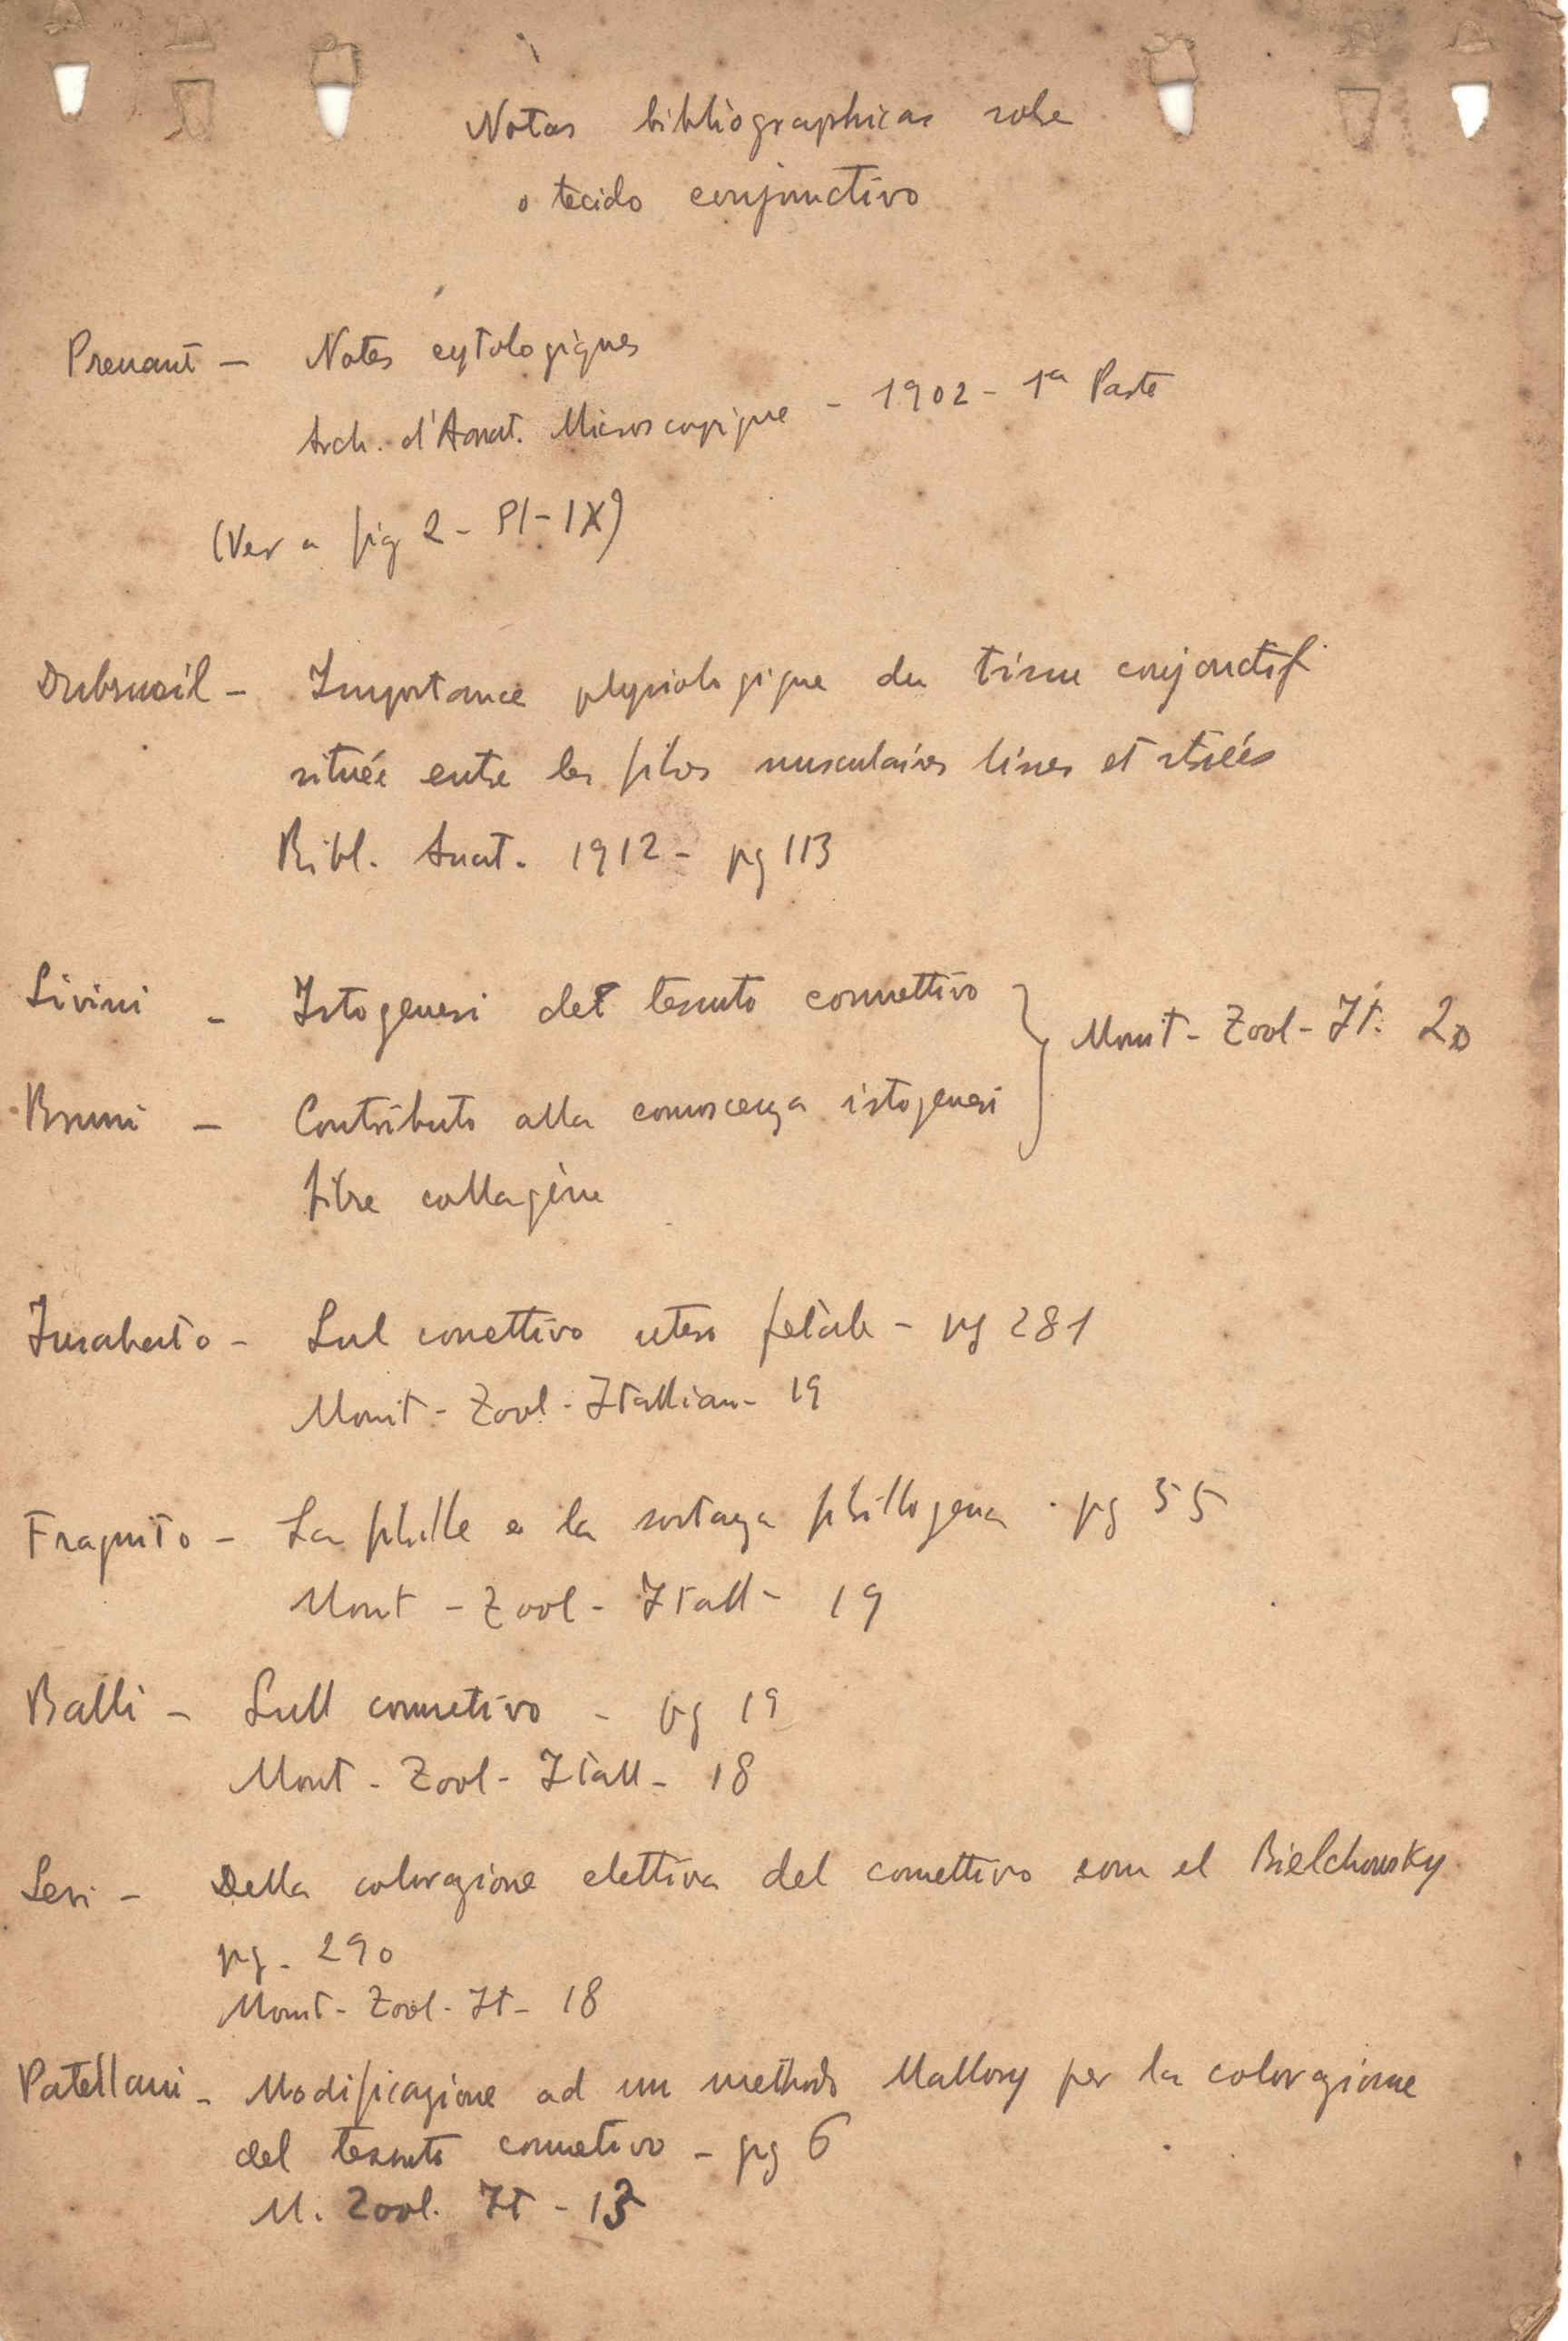 Notas bibliographicas sobre
o tecido conjunctivo
Prenant - Notes cytologiques
Arch. d'Anat. Microscopique - 1902 - 1ª Parte
(Ver a fig 2 - Pl - IX)
Dubreuil - Importance physiologique du tissu conjonctif
située entre les fibres musculaires lisses et striées
Bibl. Anat. 1912 - pg 113
Livini - Istogenesi del tessuto connettivo
Monit - Zool - It. 20
Bruni - Contributo alla conoscenza istogenesi
fibre collagène
- Sul conettivo utero fetale - pg 281
Monit - Zool - Itallian - 19
Fragnito - La phille e la phillogena - pg 55
Monit - Zool - Itall - 19
Balli - Sull connetivo - pg 19
Monit - Zool - Itall - 18
Levi - Della colorazione elettiva del comettivo com el Bielchowsky
pg. 290
Monit - Zool - It - 18
Patellani - Modificazione ad un methodo Mallory per la colorazione
del tessuto connetivo - pg 6
M. Zool. It - 13